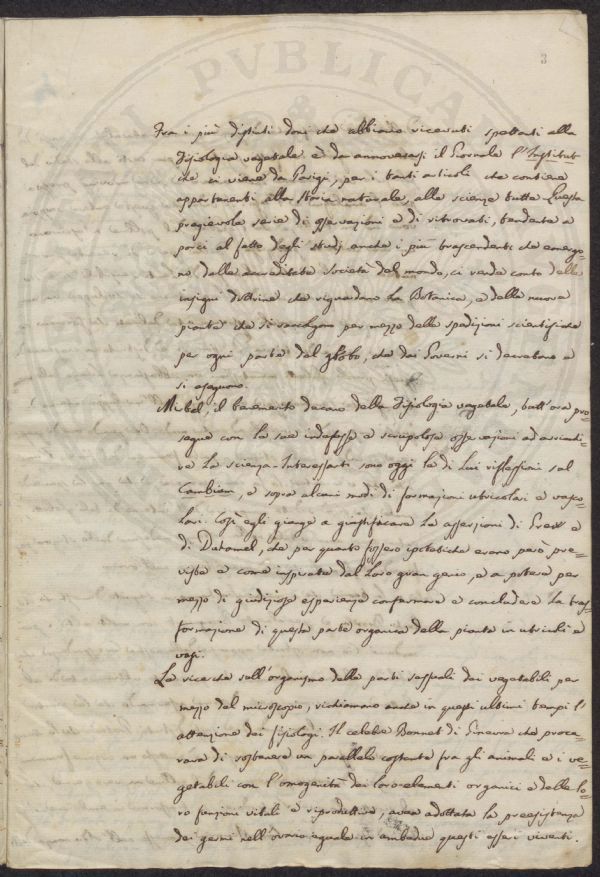 3
Fra i più distinti doni che abbiamo ricevuti spettanti alla
Fisiologia vegetale è da annoverarsi il Giornale l'Institut
che ci viene da Parigi, per i tanti articoli che contiene
appartenenti alla storia naturale, alle scienze tutte. Questa
pregievole serie di osservazioni e di ritrovati, tendente a
porci al fatto degli studj anche i più trascendenti che emergo=
no dalle accreditate società del mondo, ci rende conto delle
insigni dottrine che riguardano la Botanica, e delle nuove
piante che si raccolgono per mezzo delle spedizioni scientifiche
per ogni parte del globo, che dai Governi si decretano e
si eseguono.
Mirbel, il benemerito decano della Fisiologia vegetale, tutt'ora pro=
segue con le sue indefesse e scrupolose osservazioni ad arricchi=
re la scienza. Interessanti sono oggi le di lui riflessioni sul
Cambium, e sopra alcuni modi di formazioni utricolari e vasco=
lari. Così egli giunge a giustificare le asserzioni di Grew e
di Duhamel, che per quanto fossero ipotetiche erano però pre=
viste e come inspirate dal loro gran genio, e a potere per
mezzo di giudiziose esperienze confermare e concludere la tras=
formazione di queste parti organiche delle piante in utricoli e
vasi.
Le ricerche sull'organismo delle parti sessuali dei vegetabili per
mezzo del microscopio, richiamano anche in questi ultimi tempi l'
attenzione dei fisiologi. Il celebre Bonnet di Ginevra che procu=
rava di sostenere un parallelo costante fra gli animali e i ve=
getabili con l'omogenità dei loro elementi organici e delle lo=
ro funzioni vitali e riproduttive, avea adottata la preesistenza
dei germi nell'ovario eguale in ambedue questi esseri viventi.